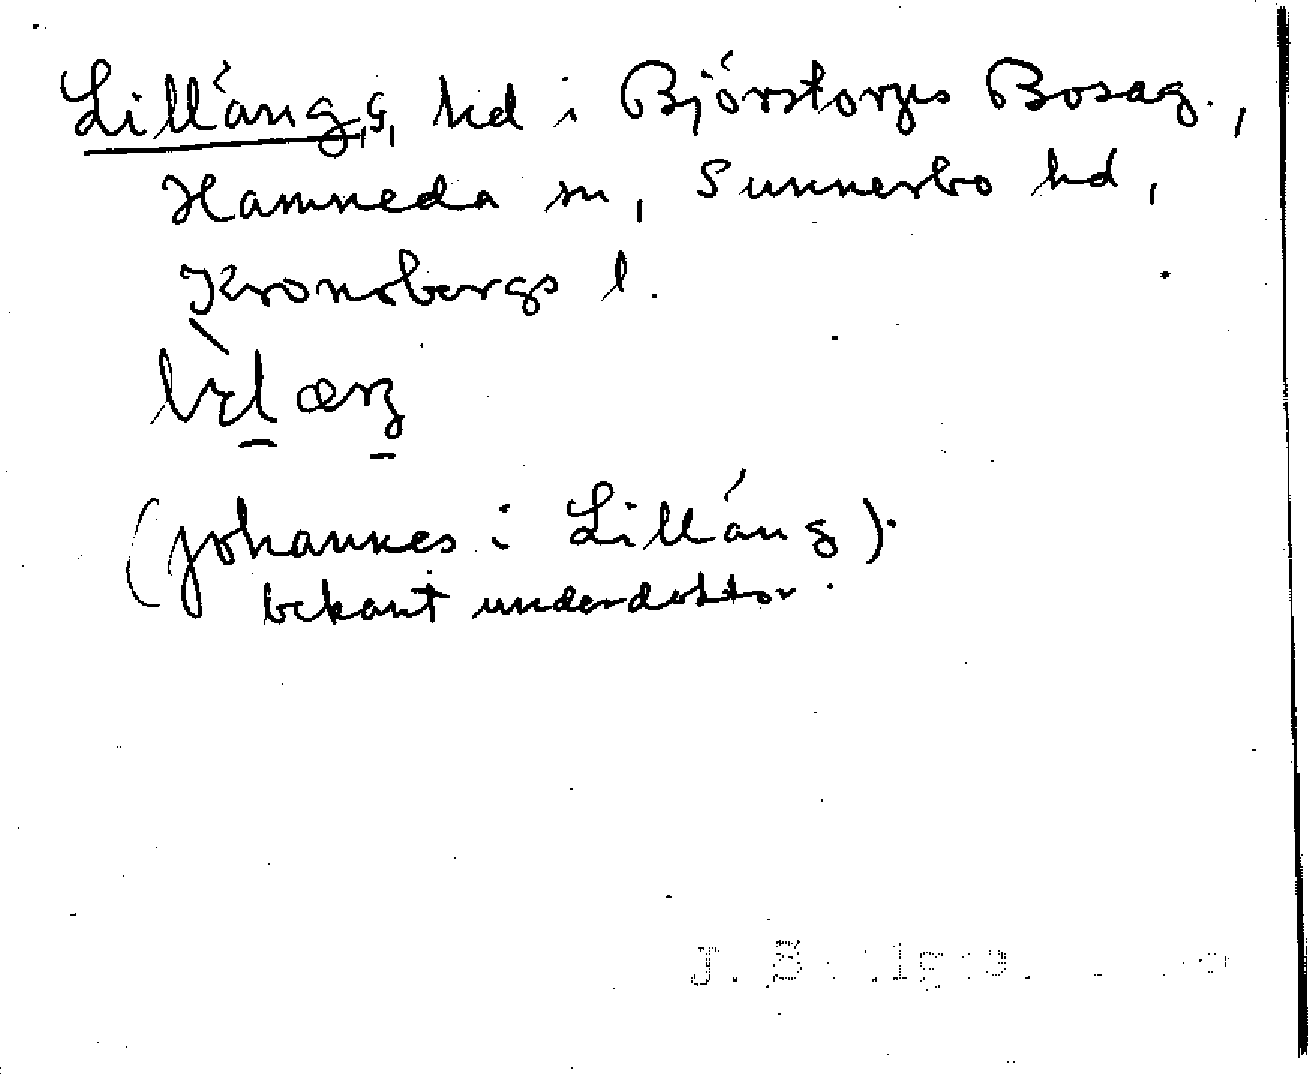 Lilläng, hd i Björstorps Bosag.,
Hamneda sn, Sunnerbo hd,
Kronobergs l.
(Johannes i Lilläng)
bekant underdoktor.